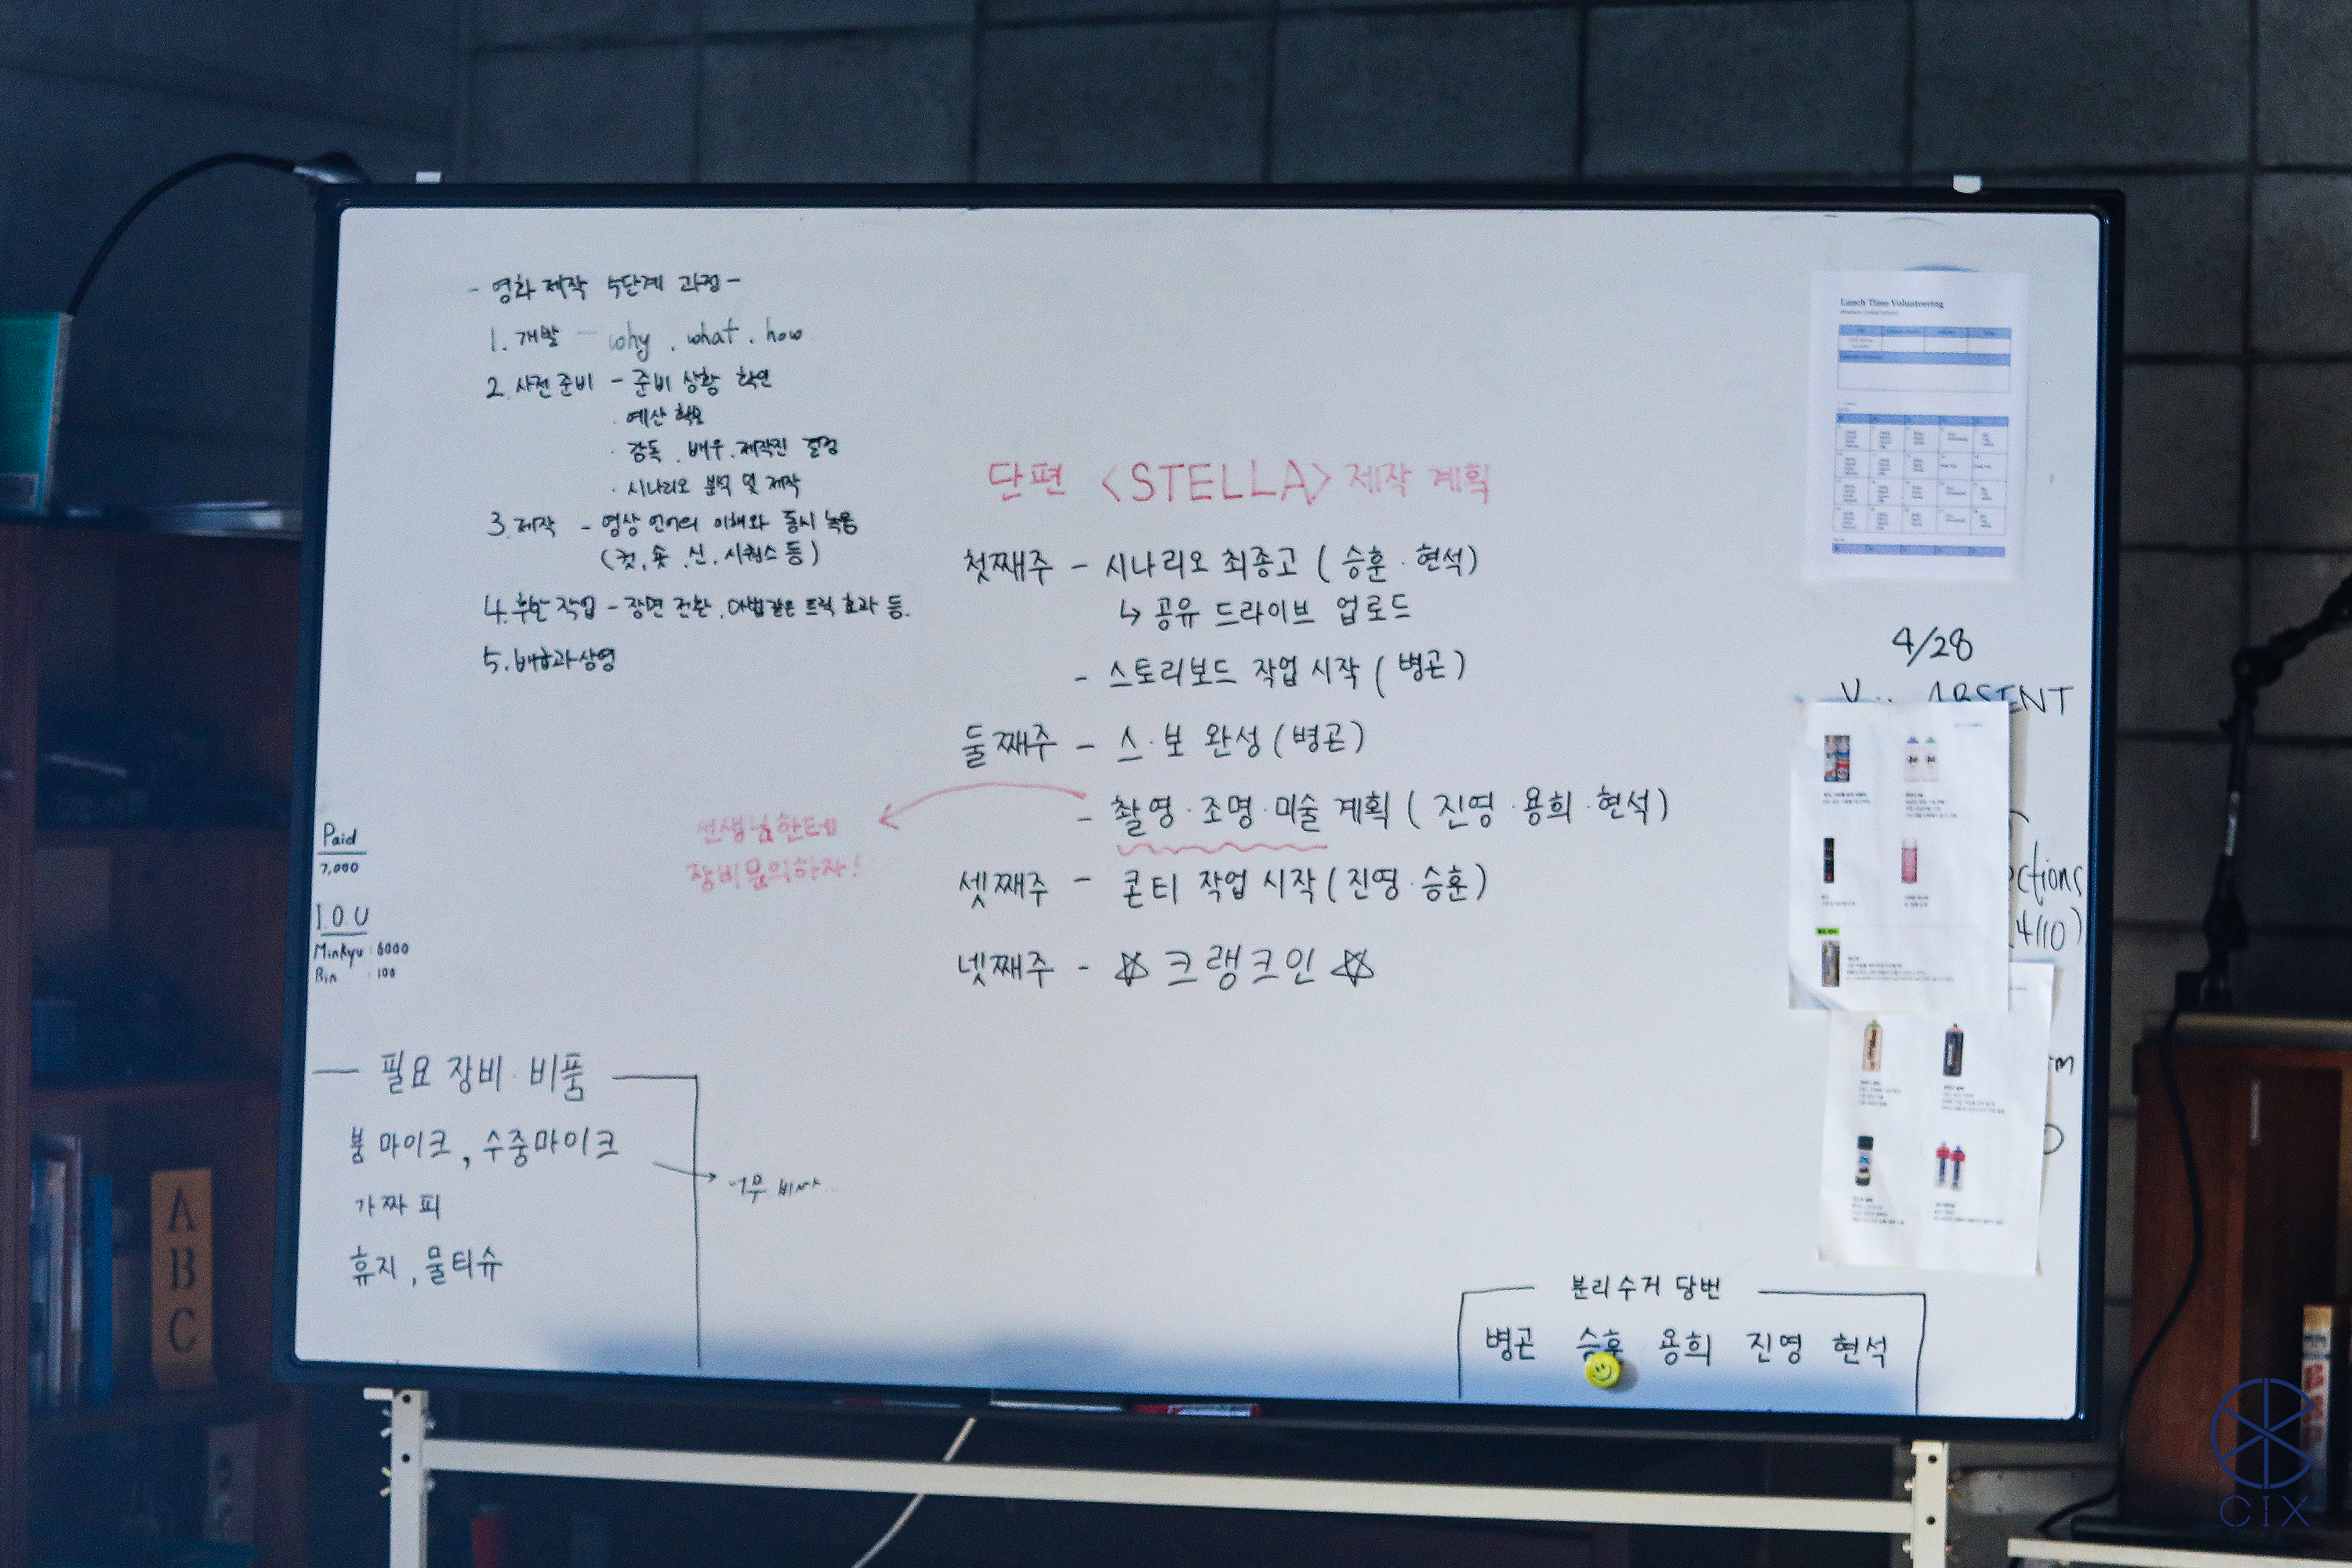 - 영화 제작 5단계 과정 -
1. 개발 - why . what . how
2. 사전 준비 - 준비 상황 확인
· 예산 확보
· 감독 . 배우 . 제작진 결정
· 시나리오 분석 및 제작
3. 제작 - 영상 언어의 이해와 동시 녹음
(컷, 숏, 신, 시퀀스 등)
4. 후반 작업 - 장면 전환, 마법같은 트릭 효과 등.
5. 배급과 상영
단편 <STELLA> 제작 계획
첫째주 - 시나리오 최종고 (승훈·현석)
↳ 공유 드라이브 업로드
- 스토리보드 작업 시작 (병곤)
둘째주 - 스·보 완성 (병곤)
- 촬영·조명·미술 계획 (진영·용희·현석)
선생님한테
장비문의하자!
셋째주 - 콘티 작업 시작 (진영·승훈)
넷째주 - ☆ 크랭크인 ☆
Paid
7,000
I.O.U
Minkyu : 6000
Bin : 100
필요 장비·비품
붐 마이크, 수중마이크
너무 비싸...
가짜 피
휴지, 물티슈
Lunch Time Volunteering
4/28
ABSENT
ections
4/10)
분리수거 당번
병곤 승훈 용희 진영 현석
A
B
C
CIX